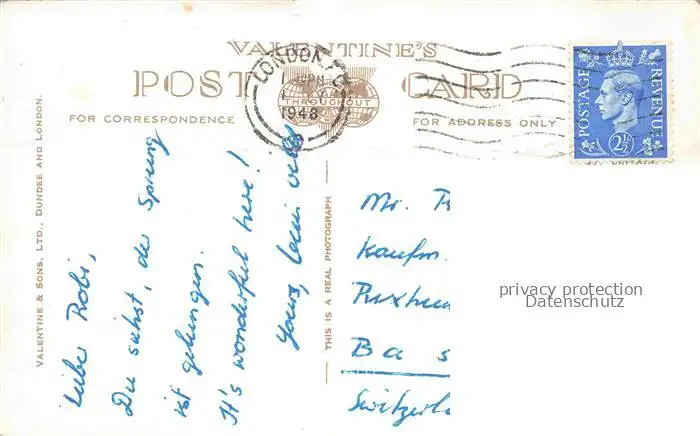 VALENTINE'S
POST CARD
THROUGHOUT
FOR CORRESPONDENCE
FOR ADDRESS ONLY
LONDON
1948
POSTAGE
REVENUE
2½
VALENTINE & SONS, LTD., DUNDEE AND LONDON.
THIS IS A REAL PHOTOGRAPH
Liebe Robi,
Du siehst, der Sprung
ist gelungen.
It's wonderful here!
Yours,
Mr.
Kaufm.
Ba s
Switzerl
privacy protection
Datenschutz